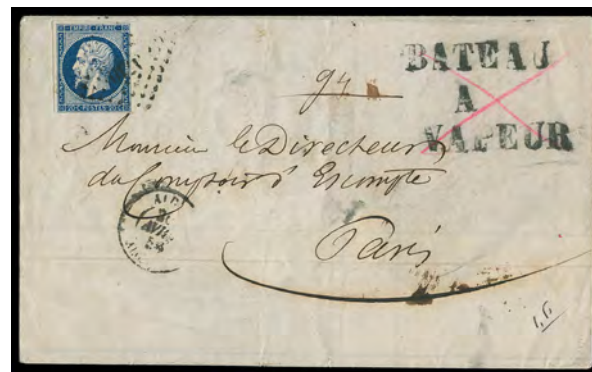 EMPIRE FRANC
20 C POSTES 20 C
BATEAU
A
VAPEUR
94
Monsieur le Directeur
du Comptoir d'Escompte
Paris
AVRIL